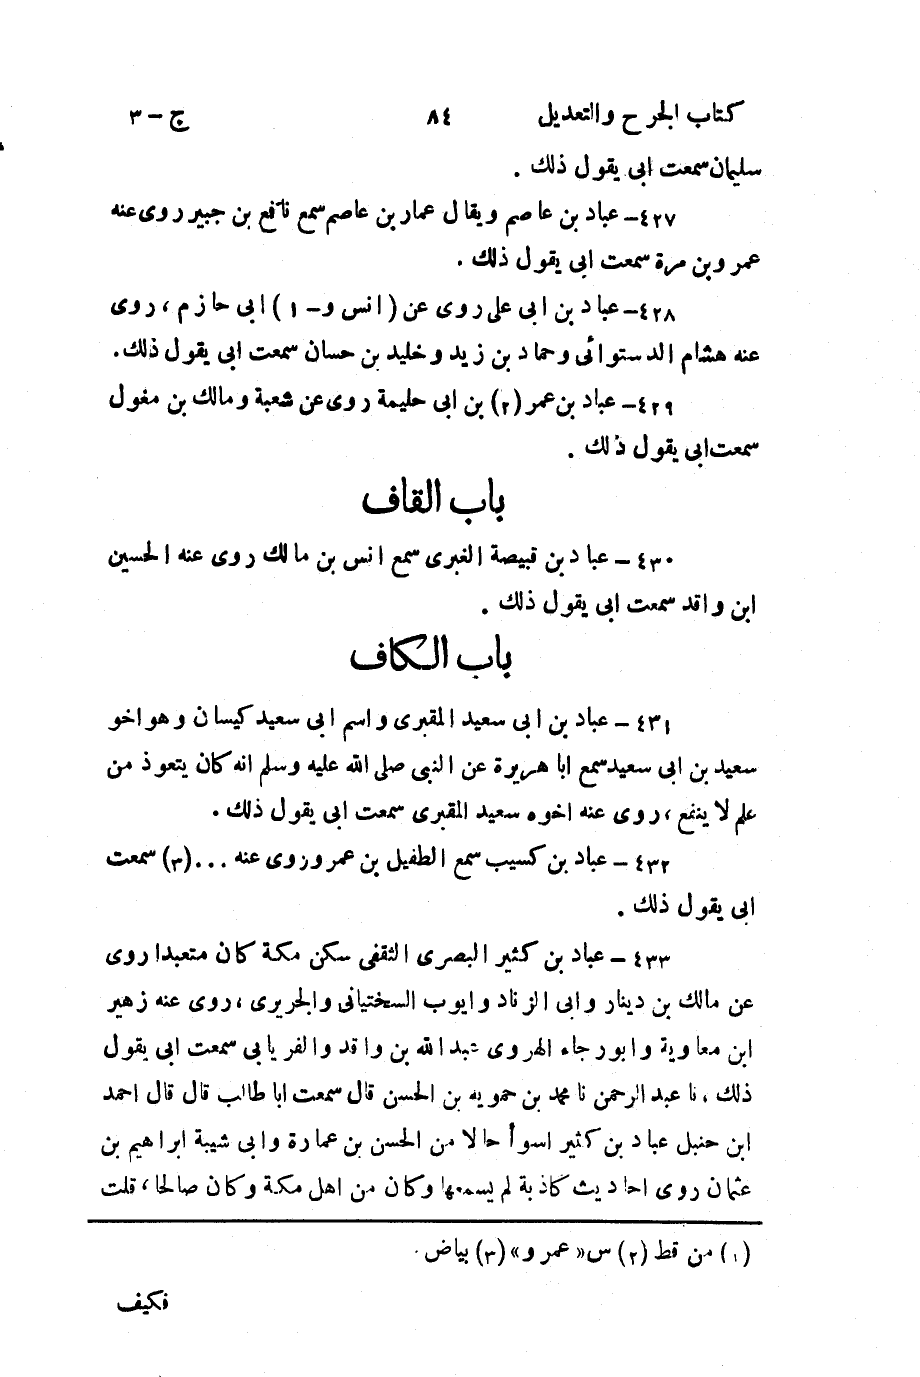 كتاب الجرح والتعديل ٨٤ ج – ٣
سليمان سمعت ابى يقول ذلك .
٤٢٧ – عباد بن عاصم ويقال عمار بن عاصم سمع نافع بن جبير روى عنه
عمرو بن مرة سمعت ابى يقول ذلك .
٤٢٨ – عباد بن ابى على روى عن ( انس و – ١ ) ابى حازم ، روى
عنه هشام الدستوائى وحماد بن زيد وخليد بن حسان سمعت ابى يقول ذلك .
٤٢٩ – عباد بن عمر (٢) بن ابى حليمة روى عن شعبة ومالك بن مغول
سمعت ابى يقول ذلك .
باب القاف
٤٣٠ – عباد بن قبيصة الغبرى سمع انس بن مالك روى عنه الحسين
ابن واقد سمعت ابى يقول ذلك .
باب الكاف
٤٣١ – عباد بن ابى سعيد المقبرى واسم ابى سعيد كيسان وهو اخو
سعيد بن ابى سعيد سمع ابا هريرة عن النبى صلى الله عليه وسلم انه كان يتعوذ من
علم لا ينفع ، روى عنه اخوه سعيد المقبرى سمعت ابى يقول ذلك .
٤٣٢ – عباد بن كسيب سمع الطفيل بن عمرو روى عنه ...(٣) سمعت
ابى يقول ذلك .
٤٣٣ – عباد بن كثير البصرى الثقفى سكن مكة كان متعبدا روى
عن مالك بن دينار وابى الزناد وايوب السختيانى والجريرى ، روى عنه زهير
ابن معاوية وابو رجاء الهروى عبد الله بن واقد والفريابي سمعت ابى يقول
ذلك ، نا عبد الرحمن نا محمد بن حمويه بن الحسن قال سمعت ابا طالب قال قال احمد
ابن حنبل عباد بن كثير اسوأ حالا من الحسن بن عمارة وابى شيبة ابراهيم بن
عثمان روى احاديث كاذبة لم يسمعها وكان من اهل مكة وكان صالحا ، قلت
(١) من قط (٢) س « عمرو » (٣) بياض .
فكيف